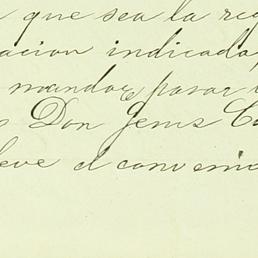 que sea la re
acion indicada,
mandar pasar
Don Jesus C
leve el conveni